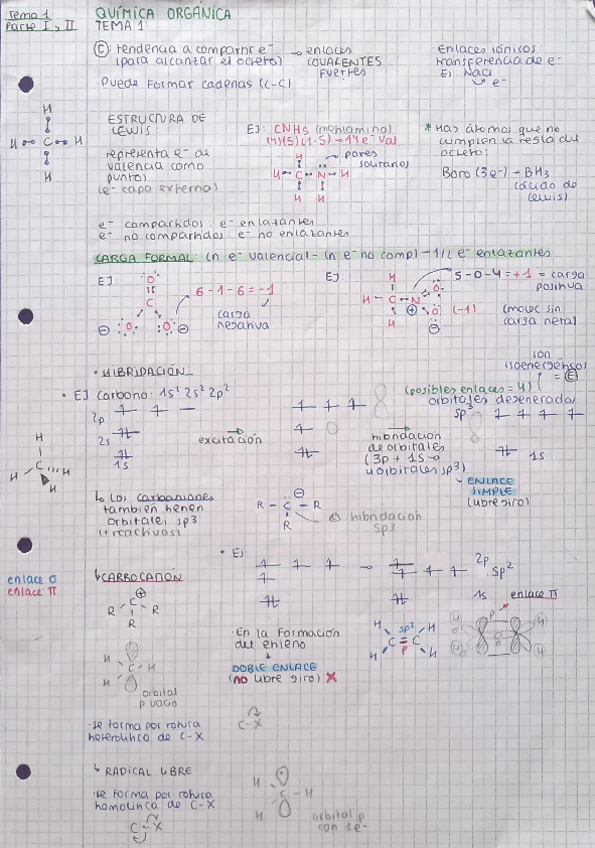 Tema 1
Parte I y II
QUÍMICA ORGÁNICA
TEMA 1
C: tendencia a compartir e⁻ → enlaces
(para alcanzar el octeto) COVALENTES
Fuertes
Enlaces iónicos
transferencia de e⁻
EJ NaCl
e⁻
Puede formar cadenas (C-C)
ESTRUCTURA DE
LEWIS:
representa e⁻ de
valencia como
puntos
(e⁻ capa externa)
EJ: CNH5 (metilamina)
pares
solitarios
* Hay átomos que no
cumplen la regla del
octeto:
Boro (3e⁻) → BH3
(ácido de
Lewis)
e⁻ compartidos: e⁻ enlazantes
e⁻ no compartidos: e⁻ no enlazantes
CARGA FORMAL: (n e⁻ valencia) - (n e⁻ no comp) - 1/2 e⁻ enlazantes
EJ
6-1-6=-1
carga
negativa
EJ
5-0-4=+1 = carga
positiva
(-1)
(molec sin
carga neta)
HIBRIDACIÓN
son
isoenergéticos
= E
EJ carbono: 1s² 2s² 2p²
(posibles enlaces = 4)
orbitales degenerados
2p
2s
1s
excitación
hibridación
de orbitales
(3p + 1s →
4 orbitales sp3)
sp³
1s
ENLACE
SIMPLE
(libre giro)
↳ Los carbaniones
también tienen
orbitales sp3
(+ reactivos)
R - C - R
R
hibridación
sp3
enlace σ
enlace π
↳ CARBOCATIÓN
R C R
R
EJ
2p
sp²
1s
enlace π
En la formación
del etileno
↓
DOBLE ENLACE
(no libre giro) X
H sp² H
C = C
H p H
orbital
p vacío
se forma por rotura
heterolítica de C-X
C-X
↳ RADICAL LIBRE
se forma por rotura
homolítica de C-X
C-X
H C - H
H
orbital p
con 1e-